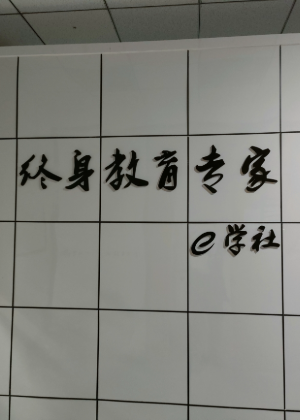 终身教育专家
e学社